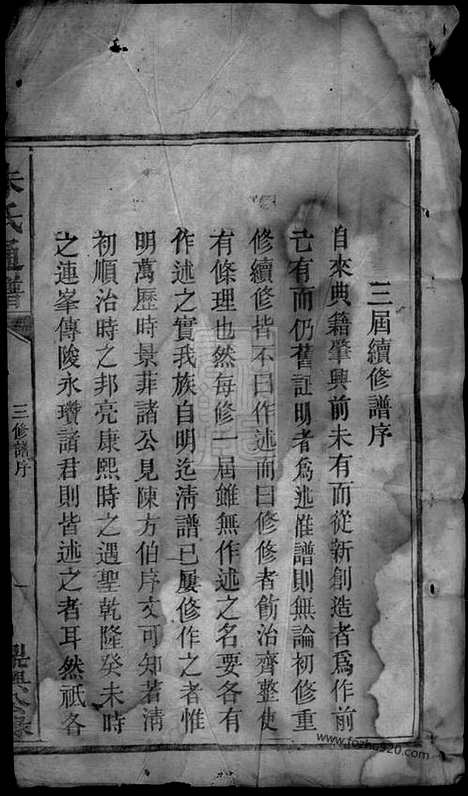 三屆續修譜序
自來典籍肇興前未有而從新創造者爲作前
已有而仍舊証明者爲述惟譜則無論初修重
修續修皆不曰作述而曰修修者飭治齊整使
有條理也然每修一屆雖無作述之名要各有
作述之實我族自明迄淸譜已屢修作之者惟
明萬歷時景菲諸公見陳方伯序文可知若淸
初順治時之邦亮康熙時之遇聖乾隆癸未時
之連峯傳陵永瓚諸君則皆述之之者耳然祇各
朱氏通譜
三修譜序
一
www.fozhu920.com